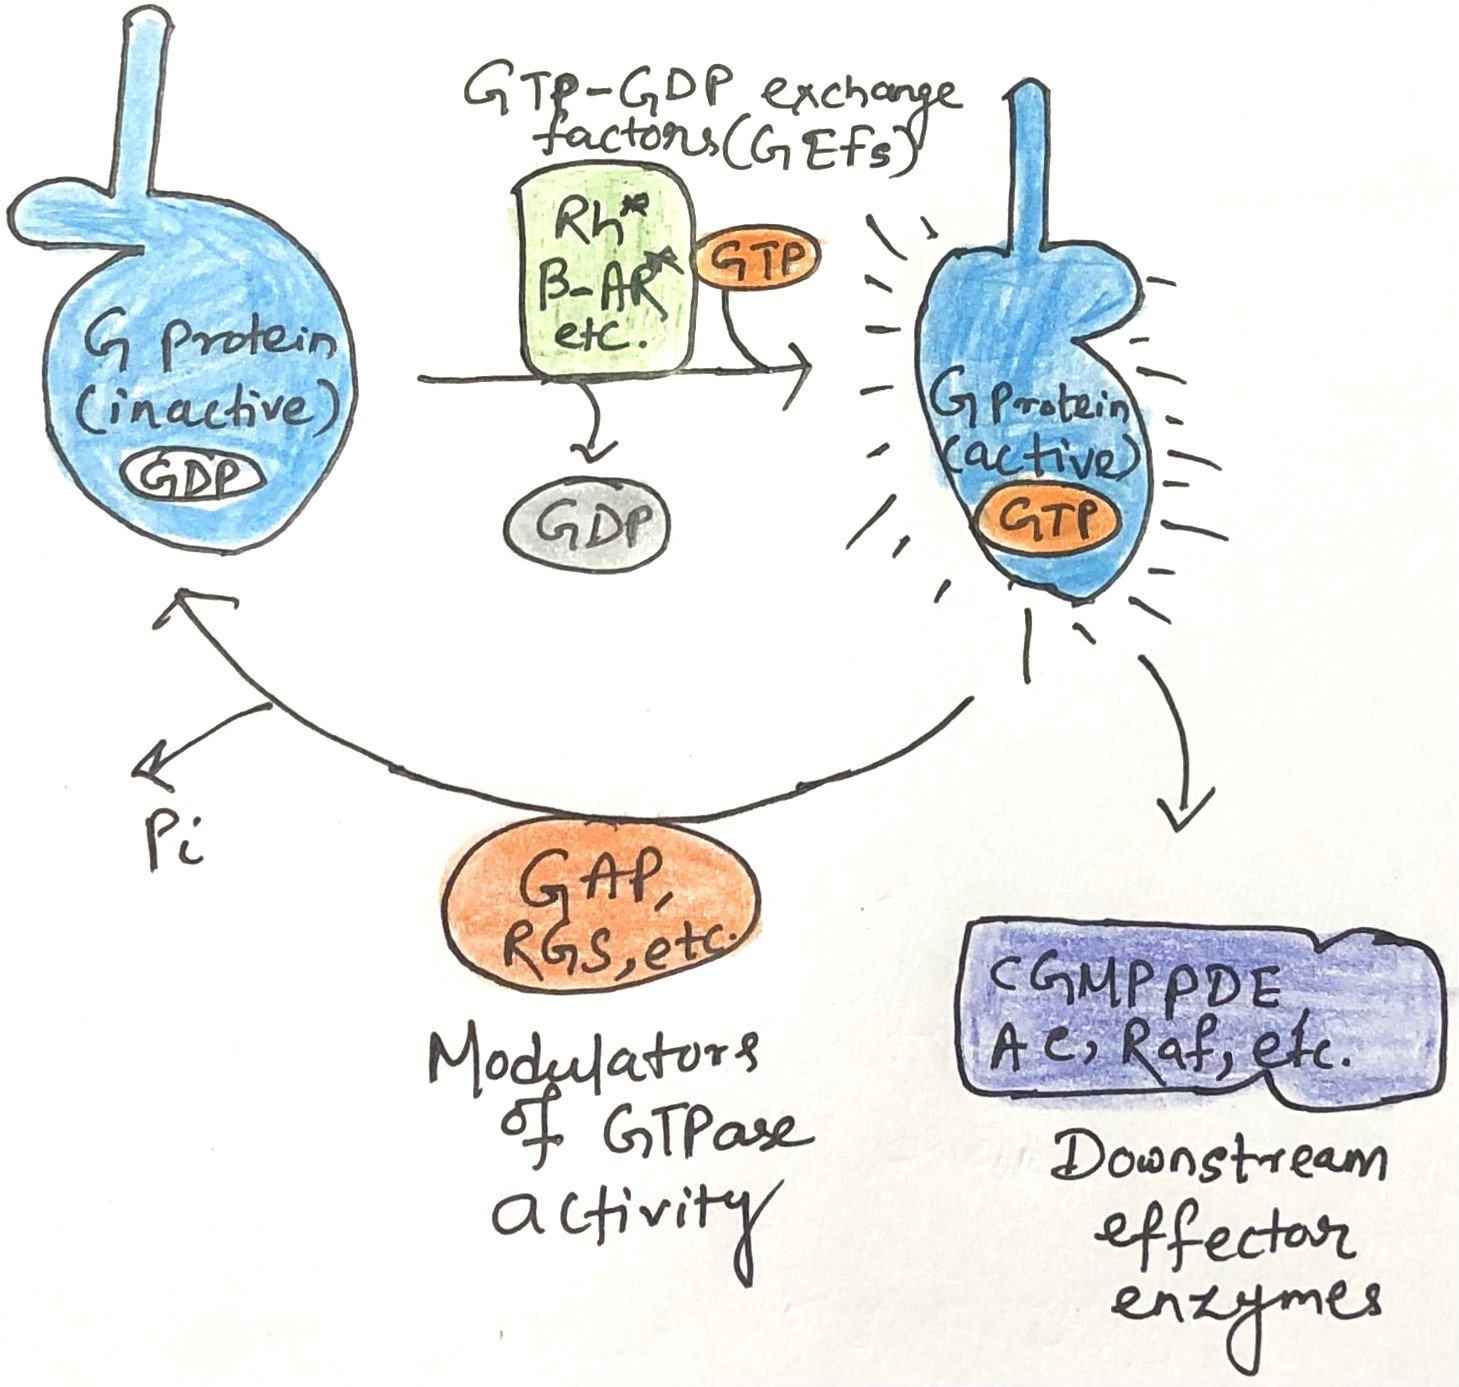 GTP-GDP exchange
factors (GEFs)
Rh*
B-AR*
etc.
GTP
G protein
(inactive)
GDP
GDP
G Protein
(active)
GTP
Pi
GAP,
RGS, etc.
Modulators
of GTPase
activity
CGMP PDE
AC, Raf, etc.
Downstream
effector
enzymes